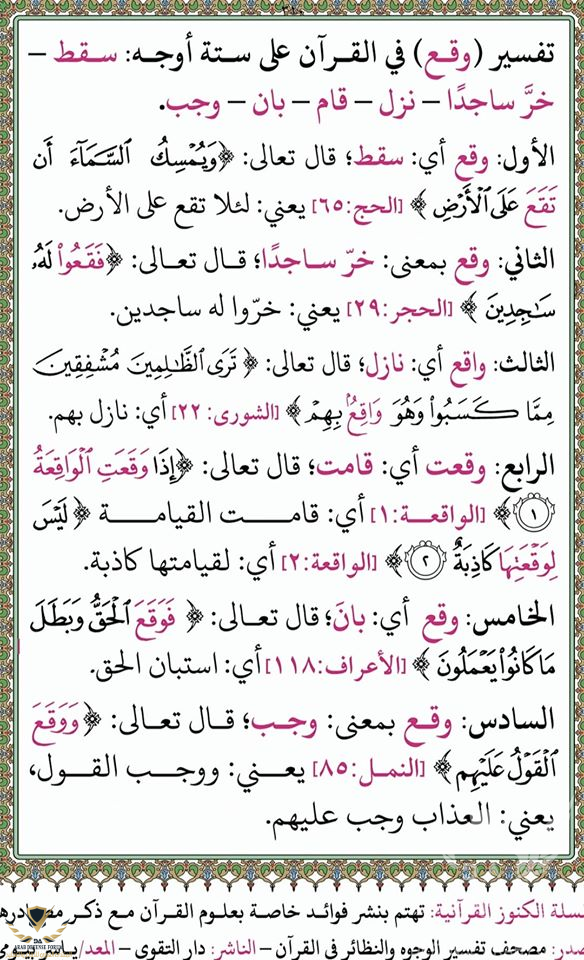 تفسير (وقع) في القرآن على ستة أوجه: سقط –
خرَّ ساجدًا – نزل – قام – بان – وجب.
الأول: وقع أي: سقط؛ قال تعالى: ﴿وَيُمْسِكُ ٱلسَّمَآءَ أَن
تَقَعَ عَلَى ٱلْأَرْضِ﴾ [الحج:٦٥] يعني: لئلا تقع على الأرض.
الثاني: وقع بمعنى: خرّ ساجدًا؛ قال تعالى: ﴿فَقَعُوا۟ لَهُۥ
سَـٰجِدِينَ﴾ [الحجر:٢٩] يعني: خرّوا له ساجدين.
الثالث: واقع أي: نازل؛ قال تعالى: ﴿تَرَى ٱلظَّـٰلِمِينَ مُشْفِقِينَ
مِمَّا كَسَبُوا۟ وَهُوَ وَاقِعٌۢ بِهِمْ﴾ [الشورى: ٢٢] أي: نازل بهم.
الرابع: وقعت أي: قامت؛ قال تعالى: ﴿إِذَا وَقَعَتِ ٱلْوَاقِعَةُ
١﴾ [الواقعة:١] أي: قامت القيامة ﴿لَيْسَ
لِوَقْعَتِهَا كَاذِبَةٌ ٢﴾ [الواقعة:٢] أي: لقيامتها كاذبة.
الخامس: وقع أي: بانَ؛ قال تعالى: ﴿فَوَقَعَ ٱلْحَقُّ وَبَطَلَ
مَا كَانُوا۟ يَعْمَلُونَ﴾ [الأعراف:١١٨] أي: استبان الحق.
السادس: وقع بمعنى: وجب؛ قال تعالى: ﴿وَوَقَعَ
ٱلْقَوْلُ عَلَيْهِم﴾ [النمل:٨٥] يعني: ووجب القول،
يعني: العذاب وجب عليهم.
سلة الكنوز القرآنية: تهتم بنشر فوائد خاصة بعلوم القرآن مع ذكر
مصحف تفسير الوجوه والنظائر في القرآن – الناشر: دار التقوى – المعد/
ARAB DEFENSE FORUM